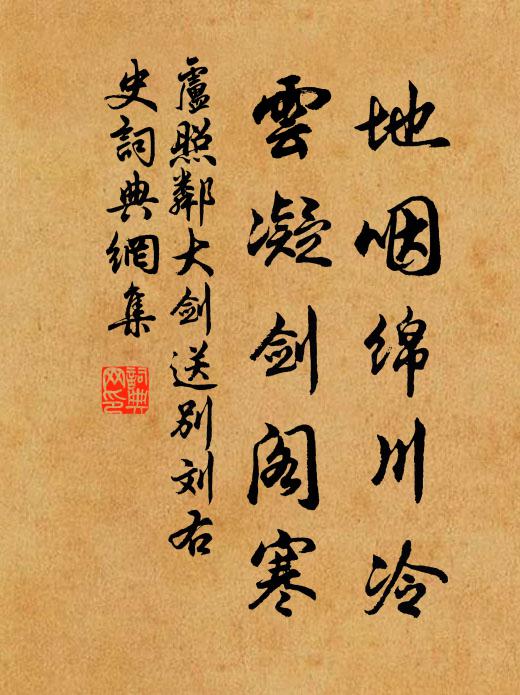 地咽绵川冷
雲凝剑阁寒
盧照鄰大剑送别刘右
史詞典網集
詞典
网印